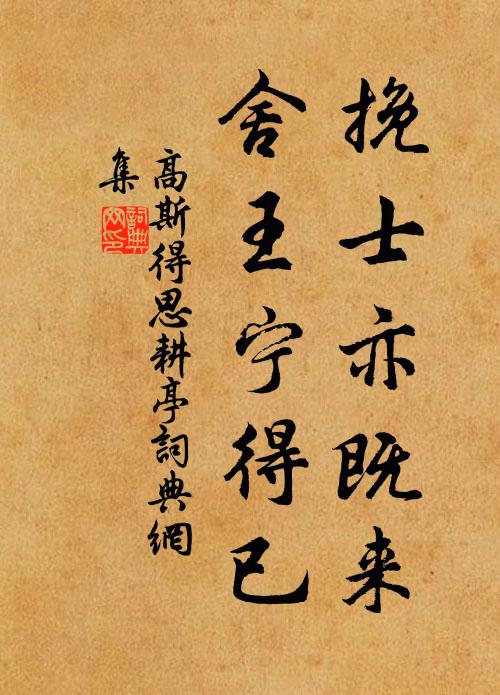 挽士亦既来
舍王宁得已
高斯得思耕亭詞典網
集
詞典
网印